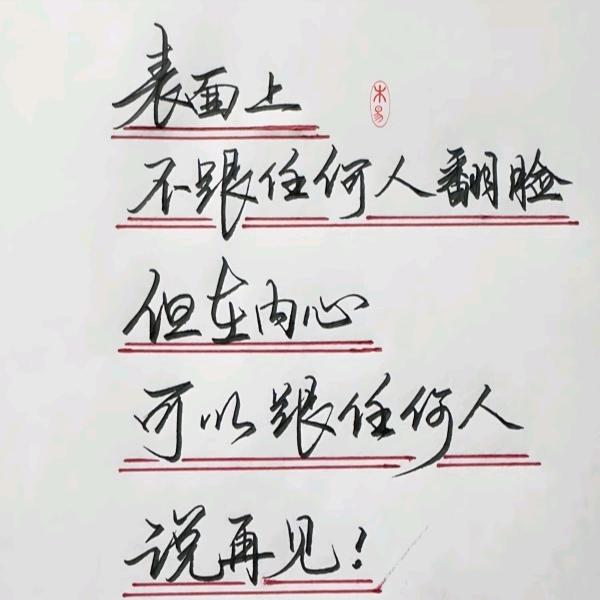 表面上
木易
不跟任何人翻脸
但在内心
可以跟任何人
说再见！